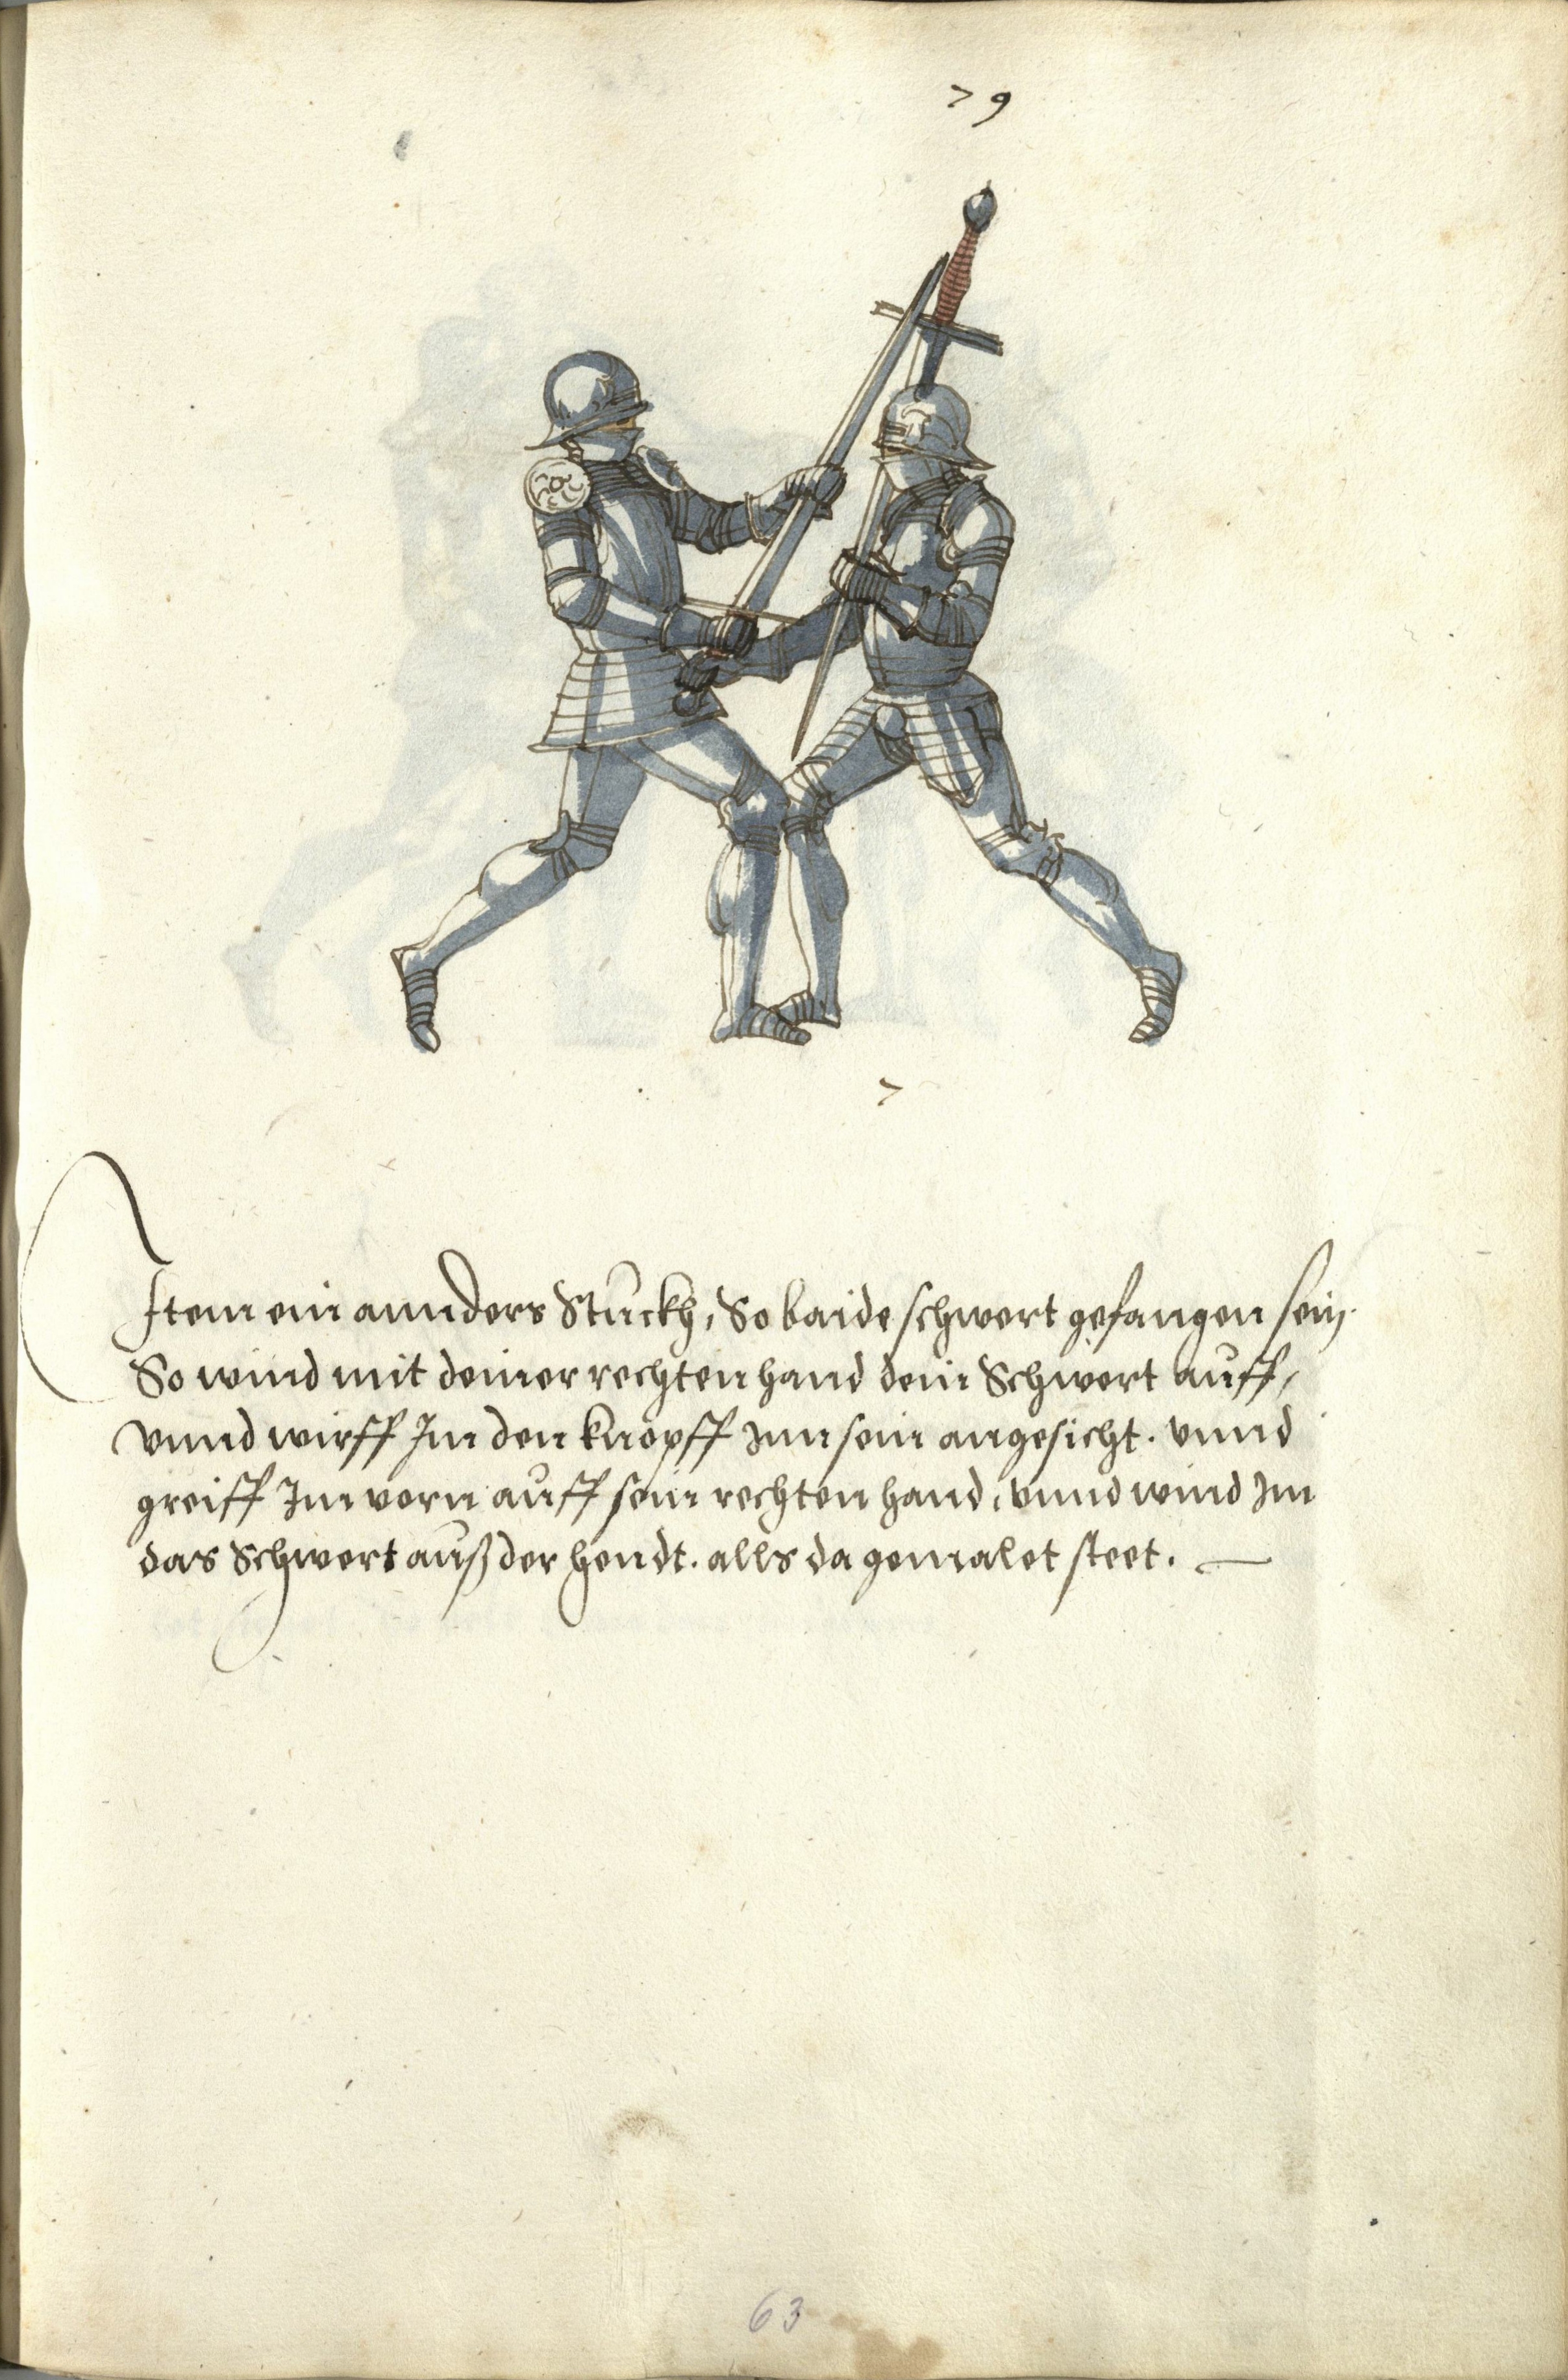 79
7
Item ein annders Stuckh, So baide schwert gefangen sein.
So wind mit deiner rechten hand dein Schwert auff,
vnnd wirff Im den knopff Inn sein angesicht. vnnd
greiff Im vorn auff sein rechten hand, vnnd wind Im
das Schwert auß der hendt. alls da gemalet steet.
63